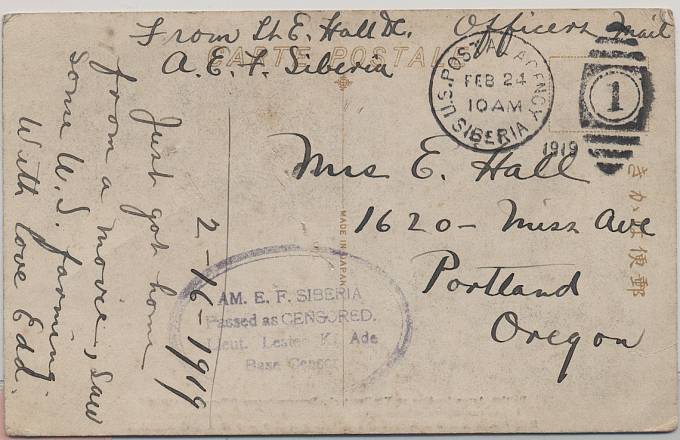 From Lt E. Hall DC. Officers Mail
A. E. F. Siberia
CARTE POSTALE
U.S. POSTAL AGENCY
FEB 24
10 AM
1919
SIBERIA
1
Mrs E. Hall
1620 - Miss Ave
Portland
Oregon
2-16-1919
Just got home
from a movie, saw
some U.S. farming
With love Edd.
MADE IN JAPAN
きかは便郵
AM. E. F. SIBERIA
Passed as CENSORED.
Lieut. Lester K. Ade
Base Censor